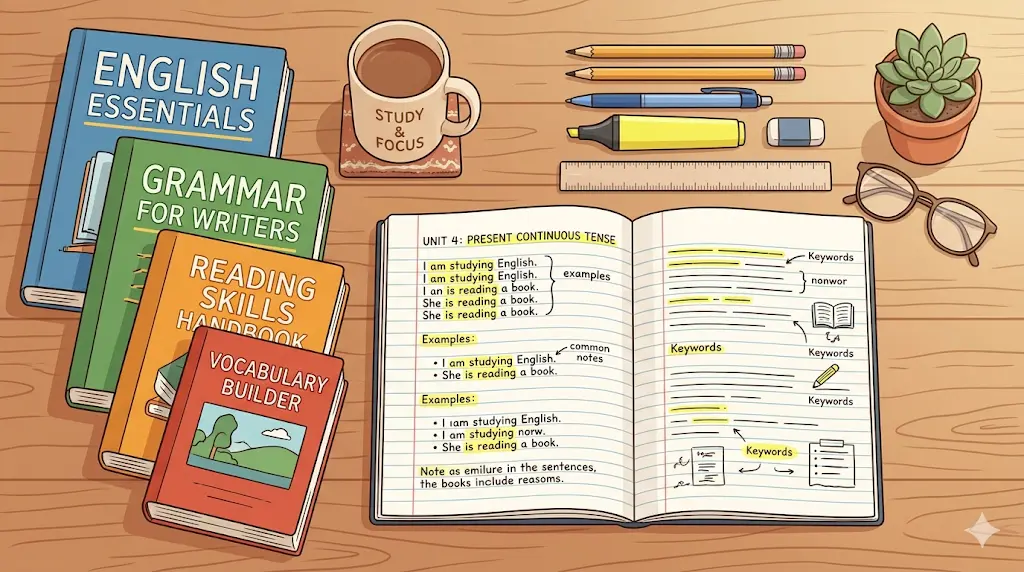 ENGLISH
ESSENTIALS
GRAMMAR
FOR WRITERS
READING
SKILLS
HANDBOOK
VOCABULARY
BUILDER
STUDY
&
FOCUS
UNIT 4: PRESENT CONTINUOUS TENSE
I am studying English.
I am studying English.
I an is reading a book.
She is reading a book.
She is reading a book.
examples
Examples:
• I am studying English.
• She is reading a book.
common
notes
Examples:
• I ıam studying English.
• I am studying norw.
• She is reading a book.
Note as emilure in the sentences,
the books include reasons.
Keywords
nonwor
Keywords
Keywords
Keywords
Keywords